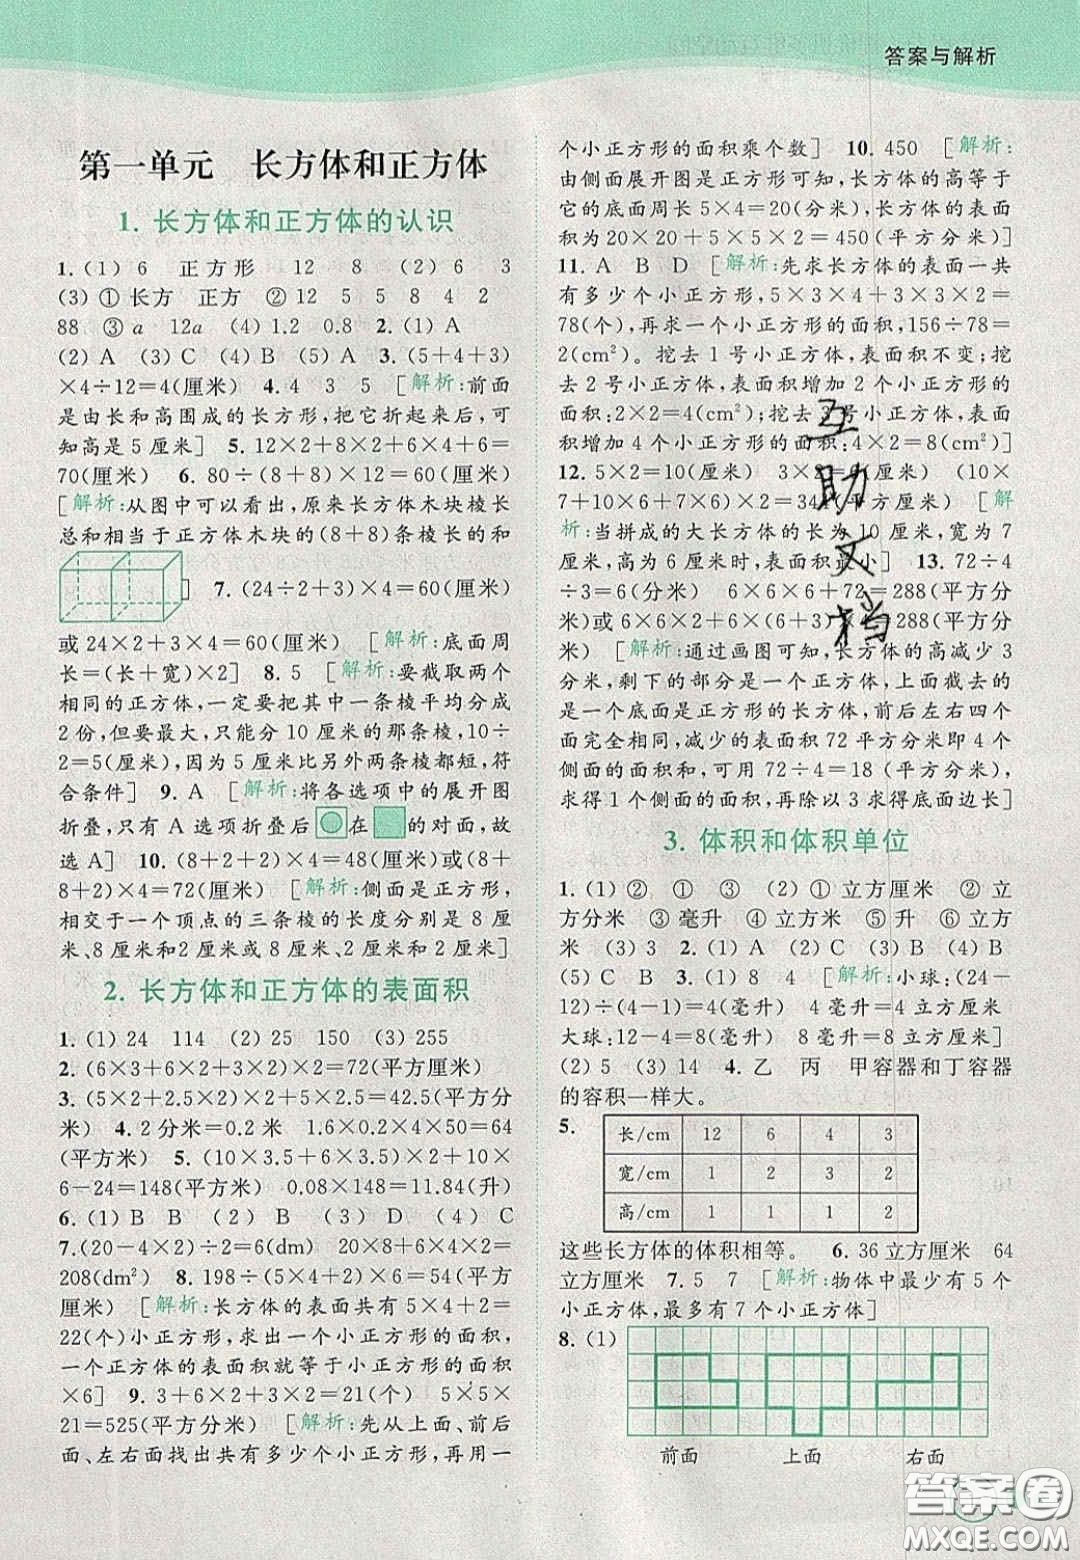 答案与解析
第一单元 长方体和正方体
1. 长方体和正方体的认识
1.(1)6 正方形 12 8 (2)6 3
(3)①长方 正方 ②12 5 5 8 4 2
88 ③a 12a (4)1.2 0.8 2.(1)A
(2)A (3)C (4)B (5)A 3.(5+4+3)
×4÷12=4(厘米) 4.4 3 5 [解析:前面
是由长和高围成的长方形,把它折起来后,可
知高是5厘米] 5.12×2+8×2+6×4+6=
70(厘米) 6.80÷(8+8)×12=60(厘米)
[解析:从图中可以看出,原来长方体木块棱长
总和相当于正方体木块的(8+8)条棱长的和
] 7.(24÷2+3)×4=60(厘米)
或24×2+3×4=60(厘米) [解析:底面周
长=(长+宽)×2] 8.5 [解析:要截取两个
相同的正方体,一定要把其中一条棱平均分成
2份,要最大,只能分10厘米的那条棱,10÷
2=5(厘米),5厘米比另外两条棱都短,符
合条件] 9.A [解析:将各选项中的展开图
折叠,只有A选项折叠后在的对面,故
选A] 10.(8+2+2)×4=48(厘米)或(8+
8+2)×4=72(厘米) [解析:侧面是正方形,
相交于一个顶点的三条棱的长度分别是8厘
米、8厘米和2厘米或8厘米、2厘米和2厘米]
2. 长方体和正方体的表面积
1.(1)24 114 (2)25 150 (3)255
2.(6×3+6×2+3×2)×2=72(平方厘米)
3.(5×2+2.5×2)×2+5×2.5=42.5(平方分
米) 4.2分米=0.2米 1.6×0.2×4×50=64
(平方米) 5.(10×3.5+6×3.5)×2+10×
6-24=148(平方米) 0.08×148=11.84(升)
6.(1)B B (2)B (3)D (4)C
7.(20-4×2)÷2=6(dm) 20×8+6×4×2=
208(dm²) 8.198÷(5×4×2+5×5×2+4×5×2)×6=54(平方
厘米) [解析:长方体的表面共有5×4×2+
22(个)小正方形,求出一个小正方形的面积,
一个正方体的表面积就等于小正方形的面积
×6] 9.3+6×2+3×2=21(个) 5×5×
21=525(平方分米) [解析:先从上面、前后
面、左右面找出共有多少个小正方形,再用一
个小正方形的面积乘个数] 10.450 [解析:
由侧面展开图是正方形可知,长方体的高等于
它的底面周长5×4=20(分米),长方体的表面
积为20×20+5×5×2=450(平方分米)]
11.A B D [解析:先求长方体的表面一共
有多少个小正方形,5×3×4+3×3×2=
78(个),再求一个小正方形的面积,156÷78=
2(cm²)。挖去1号小正方体,表面积不变;挖
去2号小正方体,表面积增加2个小正方形的
面积:2×2=4(cm²);挖去3号小正方体,表面
积增加4个小正方形的面积:4×2=8(cm²)]
12.5×2=10(厘米) 3×2=6(厘米) (10×
7+10×6+7×6)×2=344(平方厘米) [解
析:当拼成的大长方体的长为10厘米,宽为7
厘米,高为6厘米时,表面积最小] 13.72÷4
÷3=6(分米) 6×6×6+72=288(平方分
米)或6×6×2+6×(6+3)×4=288(平方分
米) [解析:通过画图可知,长方体的高减少3
分米,剩下的部分是一个正方体,上面截去的
是一个底面是正方形的长方体,前后左右四个
面完全相同,减少的表面积72平方分米即4个
侧面的面积和,可用72÷4=18(平方分米)
求得1个侧面的面积,再除以3求得底面边长]
3. 体积和体积单位
1.(1)② ① ③ (2)①立方厘米 ②立
方分米 ③毫升 ④立方米 ⑤升 ⑥立方
米 (3)3 2.(1)A (2)C (3)B (4)B
(5)C B 3.(1)8 4 [解析:小球:(24-
12)÷(4-1)=4(毫升) 4毫升=4立方厘米
大球:12-4=8(毫升) 8毫升=8立方厘米]
(2)5 (3)14 4.乙 丙 甲容器和丁容器
的容积一样大。
5.
长/cm 12 6 4 3
宽/cm 1 2 3 2
高/cm 1 1 1 2
这些长方体的体积相等。 6.36立方厘米 64
立方厘米 7.5 7 [解析:物体中最少有5个
小正方体,最多有7个小正方体]
8.(1)
前面 上面 右面
互助文档
答案圈
MXQE.COM